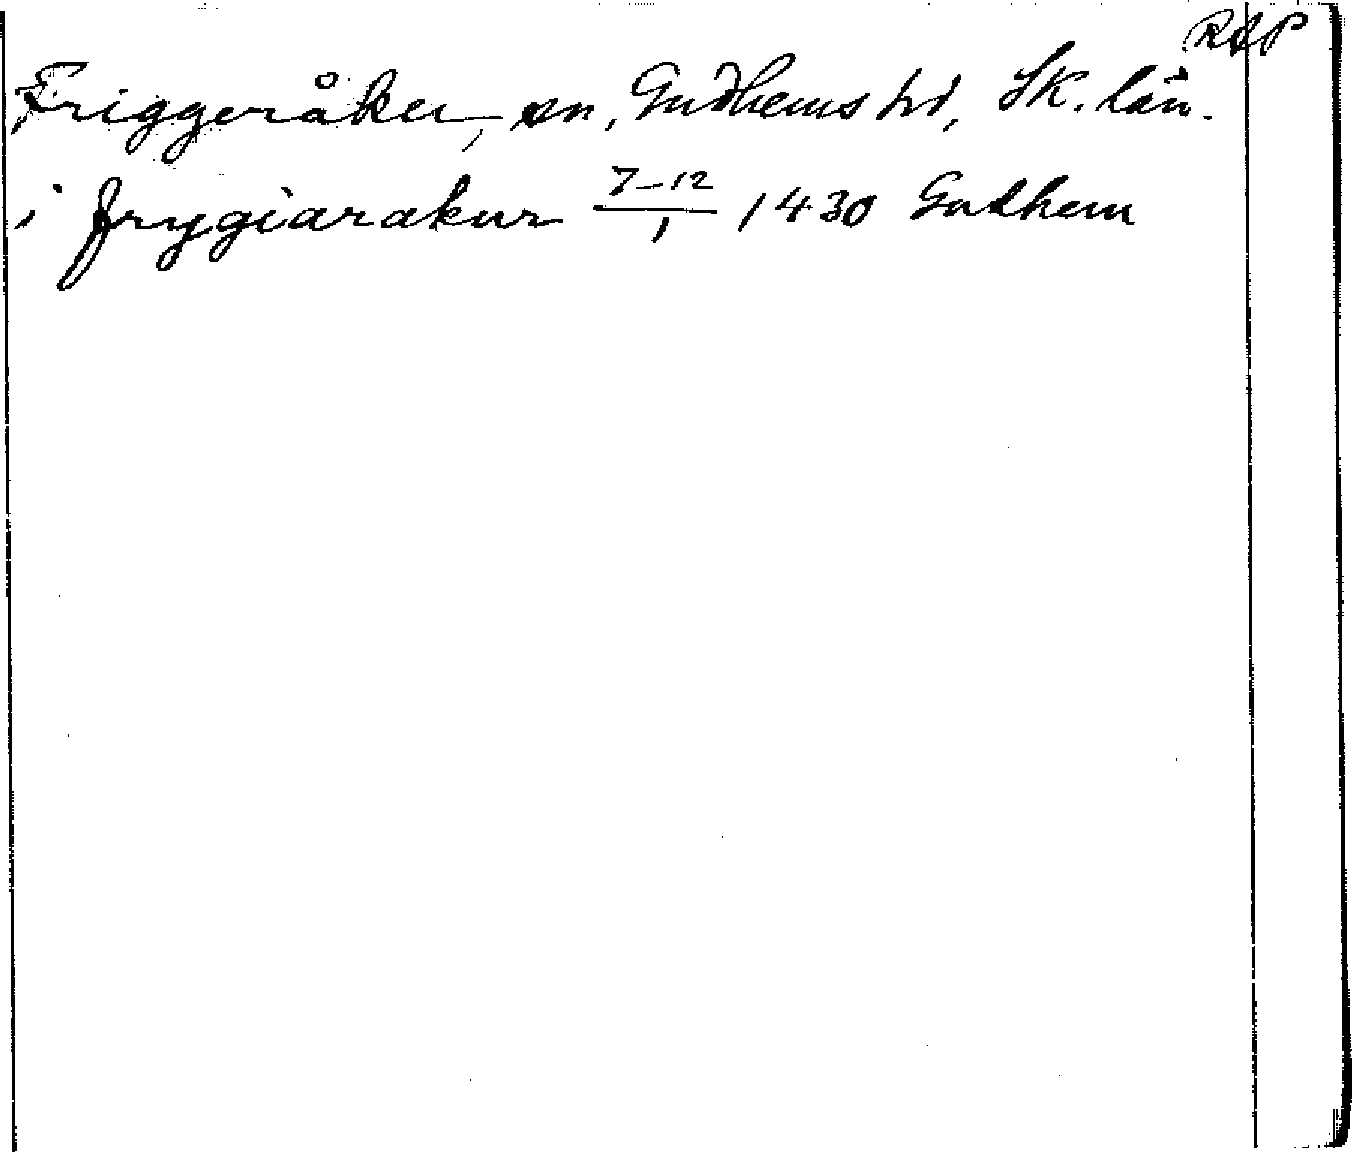 RAP
Friggeråker, sn, Gudhems hd, Sk. län.
i frygiarakur 7-12/1 1430 Gudhem